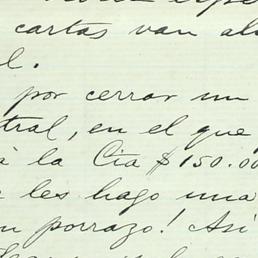 cartas van
l.
por cerrar un
tral, en el que
á la Cía $150.00
les hago una
porrazo! Así